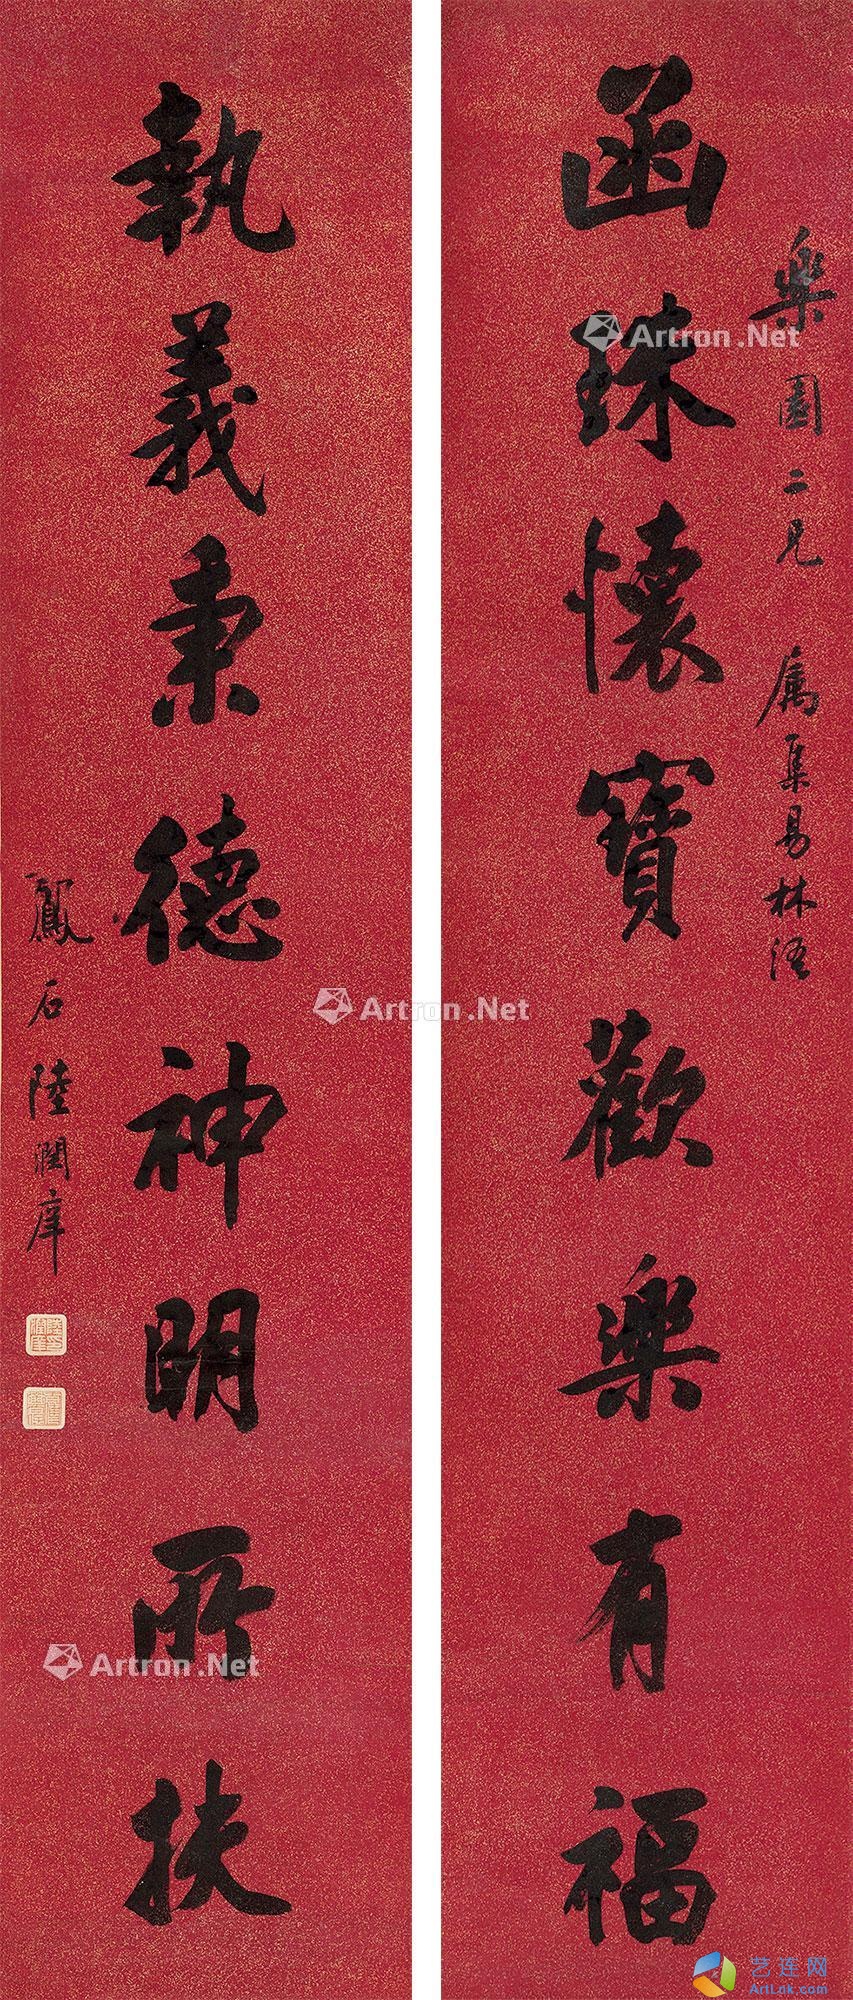 樂園二兄 屬集易林語
函珠懷寶歡樂有福
執義秉德神明所扶
鳳石陸潤庠
Artron.Net
Artron.Net
Artron.Net
艺连网
ArtLok.com